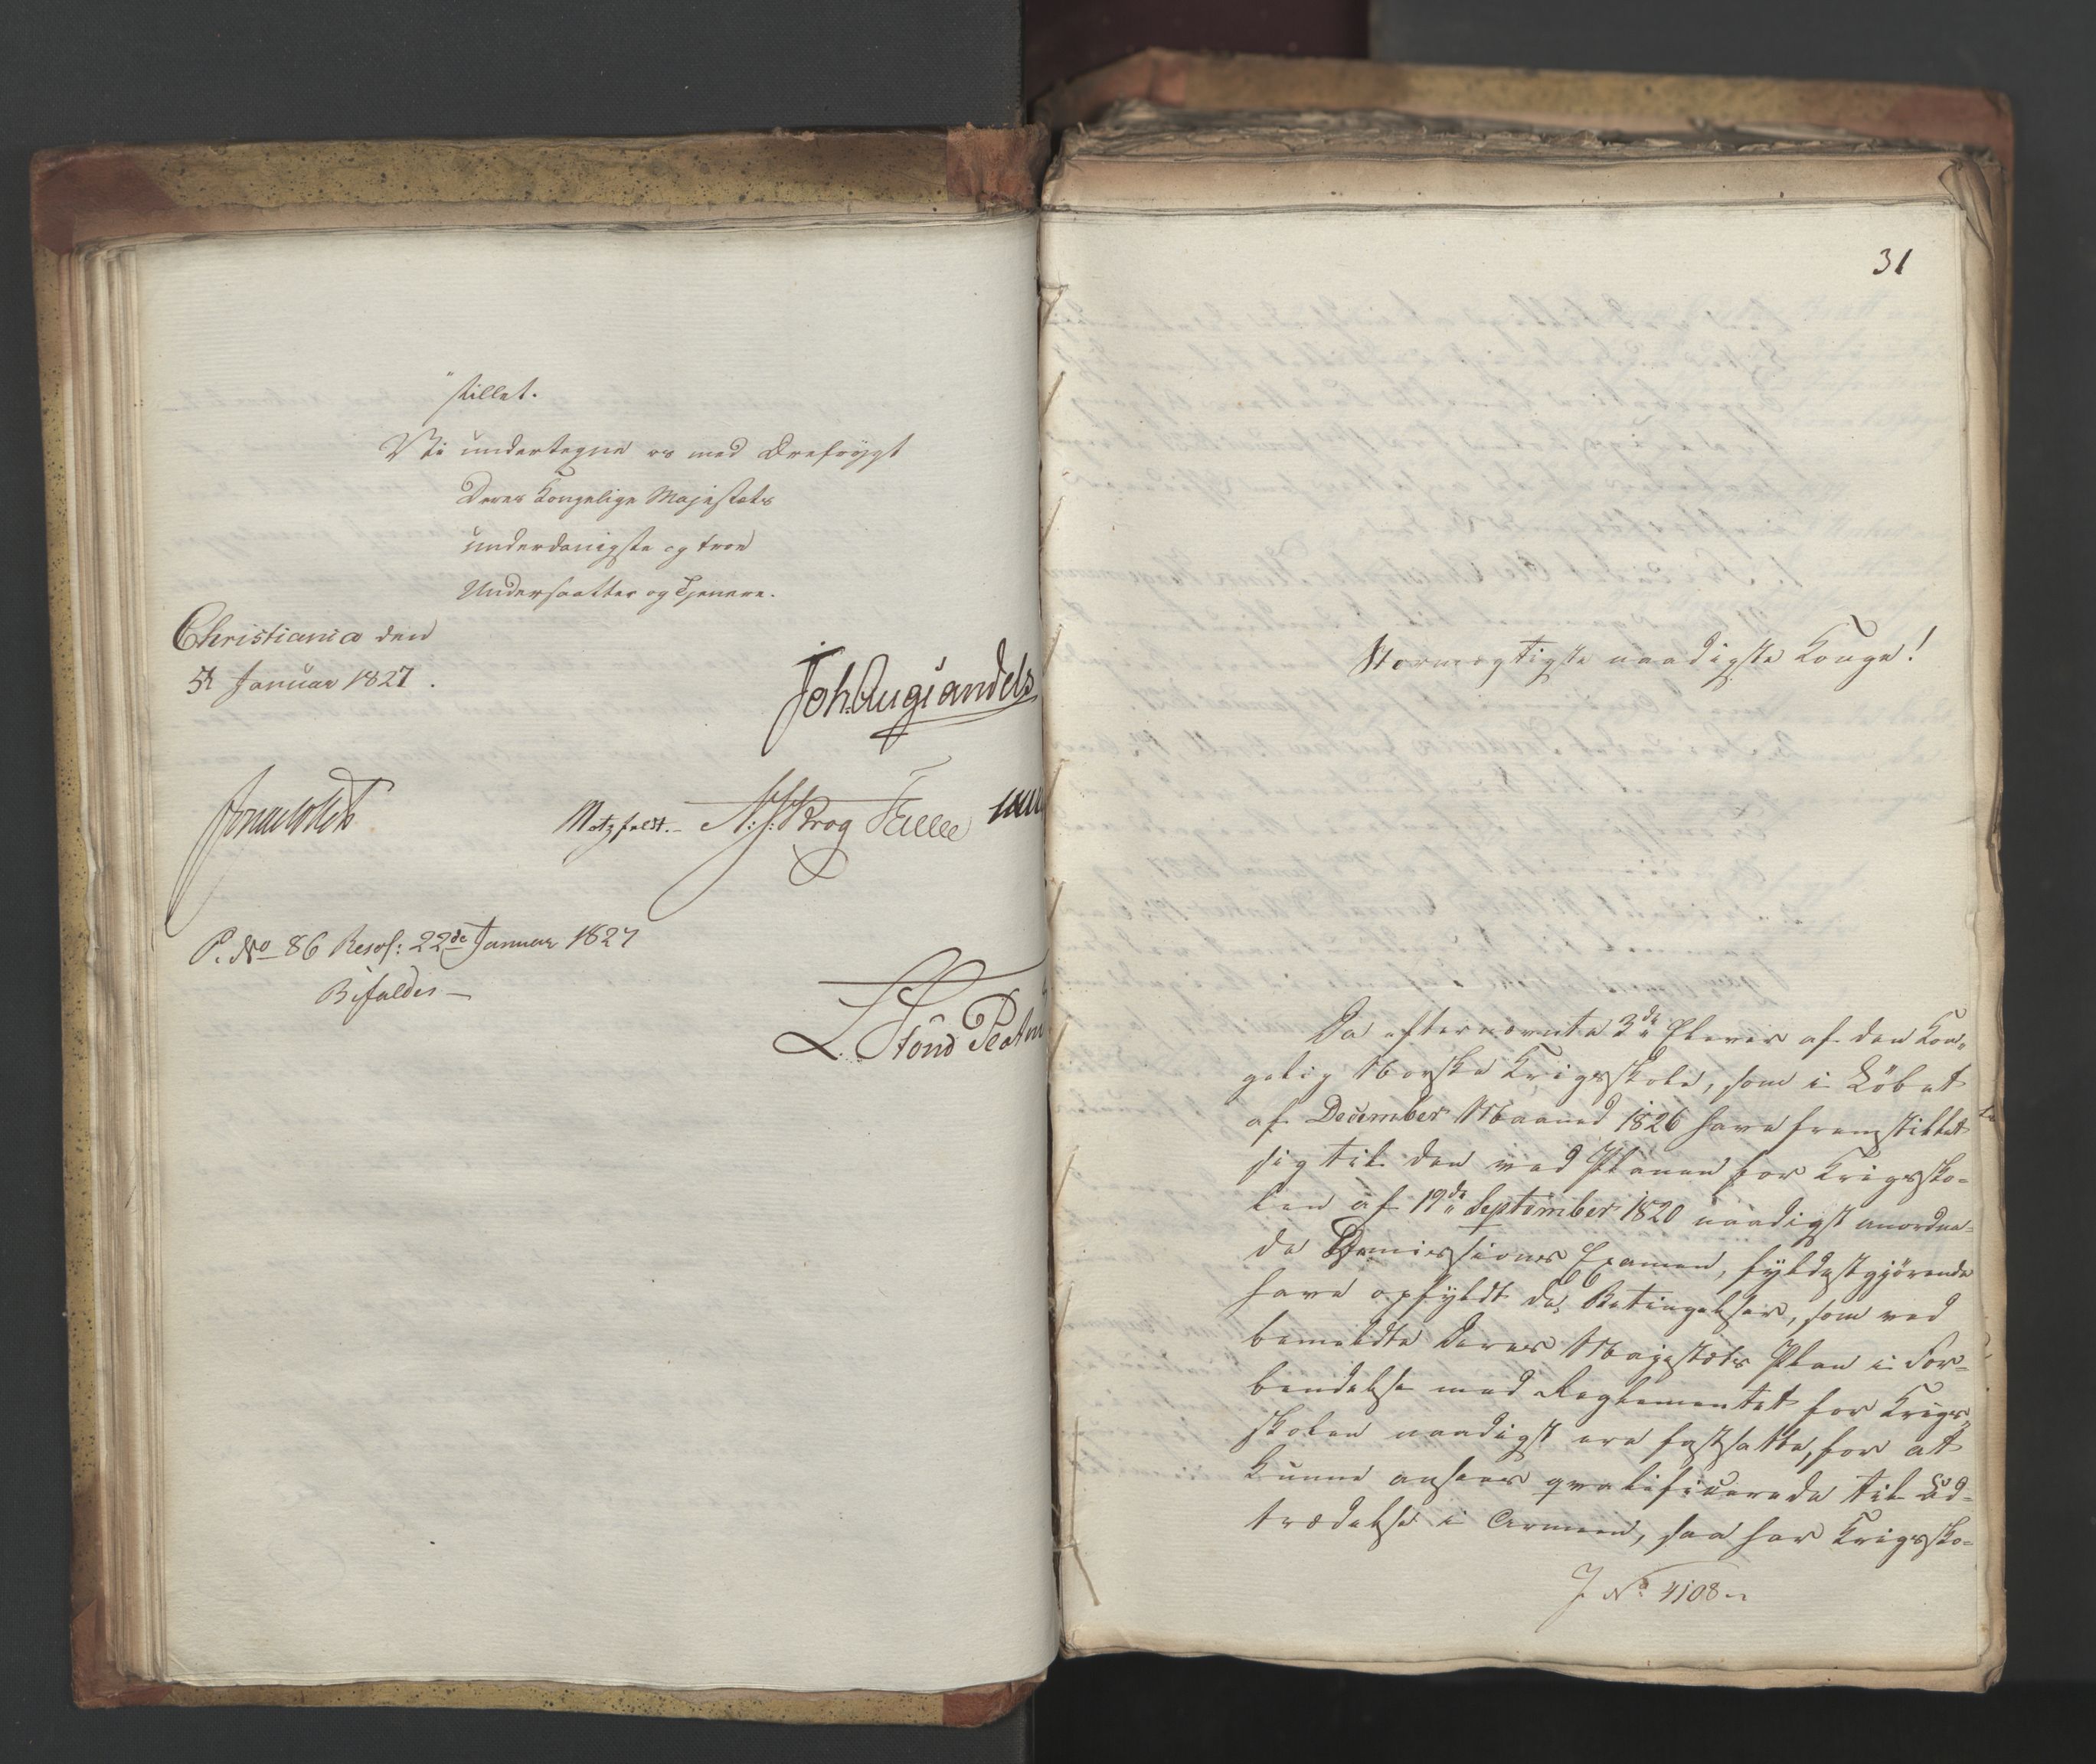 "stillet.
Vi undertegne os med Ærefrygt
Deres Kongelige Majestæts
underdanigste og troe
Undersaatter og Tjenere.
Christiania den
5t Januar 1827.
Joh. Aug. Sandels
Jonas Collett
Motzfeldt. N: J: Krog Fasting
P. No 86 Resol: 22de Januar 1827
Bifaldes —
31
Stormægtigste naadigste Konge!
Da efternævnte 3de Elever af den Kon„
gelig Norske Krigsskole, som i Löbet
af December Maaned 1826 have fremstillet
sig til den ved Planen for Krigssko=
len af 19de September 1820 naadigst anordne=
de Demissions Examen, fyldestgjörende
have opfyldt de Betingelser, som ved
bemeldte Deres Majestæts Plan i For=
bindelse med Reglementet for Krigs„
skolen naadigst ere fastsatte, for at
kunne ansees qvalificerede til Ud=
trædelse i Armeen, saa har Krigssko=
J No 4108